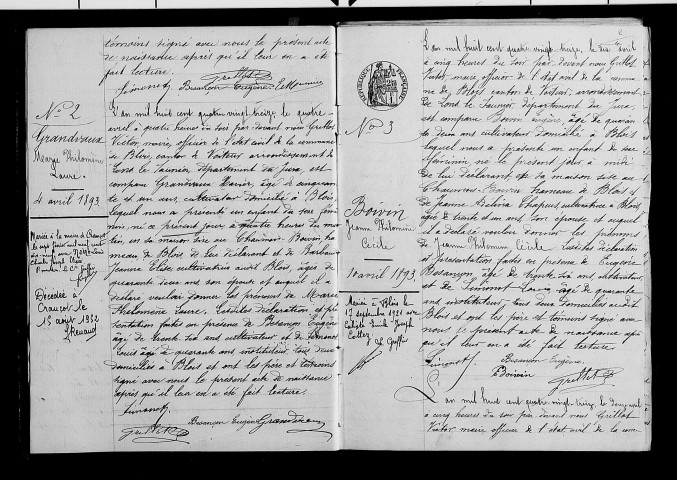 témoins signé avec nous le présent acte
de naissance après qu'il leur en a été
fait lecture.
Simonet Besançon Eugène
N° 2
Grandvaux
Marie Philomène
Laure.
4 avril 1893
L'an mil huit cent quatre vingt treize, le quatre
avril à quatre heures du soir par devant nous Grillot
Victor, maire, officier de l'état civil de la commune
de Blois, canton de Voiteur arrondissement de
Lons le Saunier département du Jura, est
comparu Grandvaux Xavier, âgé de cinquante
et un ans, cultivateur domicilié à Blois
lequel nous a présenté un enfant du sexe fémi-
nin, né ce présent jour à quatre heures du ma-
tin, en sa maison sise au Chaumois Boivin ha-
meau de Blois de lui déclarant et de Barbaud
Jeanne Elise cultivatrice audit Blois, âgée de
quarante deux ans son épouse et auquel il a
déclaré vouloir donner les prénoms de Marie
Philomène Laure. Lesdites déclaration et pré-
sentation faites en présence de Besançon Eugène
âgé de trente six ans cultivateur et de Simonet
Louis âgé de quarante ans instituteur, tous deux
domiciliés à Blois et ont les père et témoins
signé avec nous le présent acte de naissance
après qu'il leur en a été fait lecture.
Simonet
Grillot Besançon Eugène Grandvaux
Mariée à la mairie de Crançot
Décédée à
Crançot le
15 août 1932
Renaud
N° 3
Boivin
Jeanne Philomène
Cécile
10 avril 1893
Mariée à Blois le
17 septembre 1921 avec
Joseph
Le Greffier
RÉPUBLIQUE FRANÇAISE
L'an mil huit cent quatre vingt treize, le dix avril
à cinq heures du soir par devant nous Grillot
Victor, maire officier de l'état civil de la commu-
ne de Blois canton de Voiteur, arrondissement
de Lons le Saunier, département du Jura,
est comparu Boivin Eugène, âgé de quaran-
te deux ans cultivateur domicilié à Blois
lequel nous a présenté un enfant du sexe
féminin né le présent jour à midi
de lui déclarant en sa maison sise au
Chaumois Boivin hameau de Blois et
de Jeanne cultivatrice
âgée de trente et un ans son épouse et auquel
il a déclaré vouloir donner les prénoms
de Jeanne Philomène Cécile Lesdites déclaration
et présentation faites en présence de Eugène
Besançon, âgé de trente six ans cultivateur,
et de Simonet Louis âgé de quarante
ans instituteur, tous deux domiciliés audit
Blois et ont les père et témoins signé avec
nous le présent acte de naissance après
qu'il leur en a été fait lecture
Simonet Besançon Eugène
Boivin Grillot
L'an mil huit cent quatre vingt treize, le douze avril
à cinq heures du soir par devant nous Grillot
Victor maire officier de l'état civil de la com-